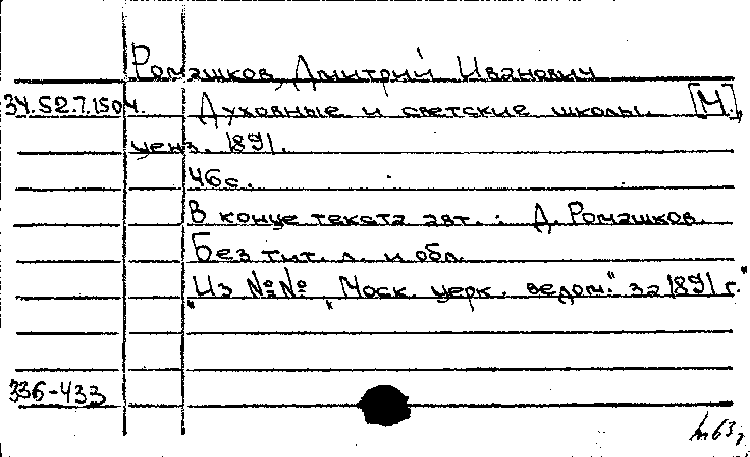 Ромашков, Дмитрий Иванович
34.52.7.1504. Духовные и светские школы. [М.],
ценз. 1891.
46 с.
В конце текста авт.: Д. Ромашков.
Без тит. л. и обл.
"Из №№ "Моск. церк. ведом." за 1891 г."
336-433